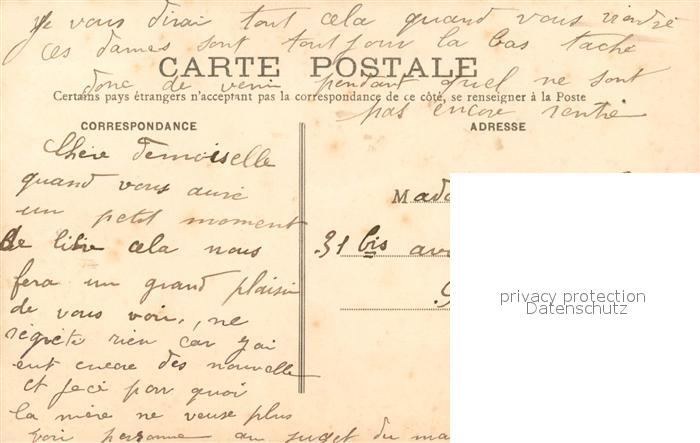 je vous dirai tout cela quand vous viendré
ces dames sont toutjour la bas tache
CARTE POSTALE
donc de venir pendant quel ne sont
Certains pays étrangers n'acceptant pas la correspondance de ce côté, se renseigner à la Poste
pas encore rentré
CORRESPONDANCE
ADRESSE
Chère demoiselle
quand vous auré
un petit moment
de libre cela nous
fera un grand plaisir
de vous voir, ne
régrété rien car j'ai
eut encore des nouvelle
et je cé pour quoi
la mère ne veuse plus
voir personne au suget du ma
Mada
31 bis av
privacy protection
Datenschutz